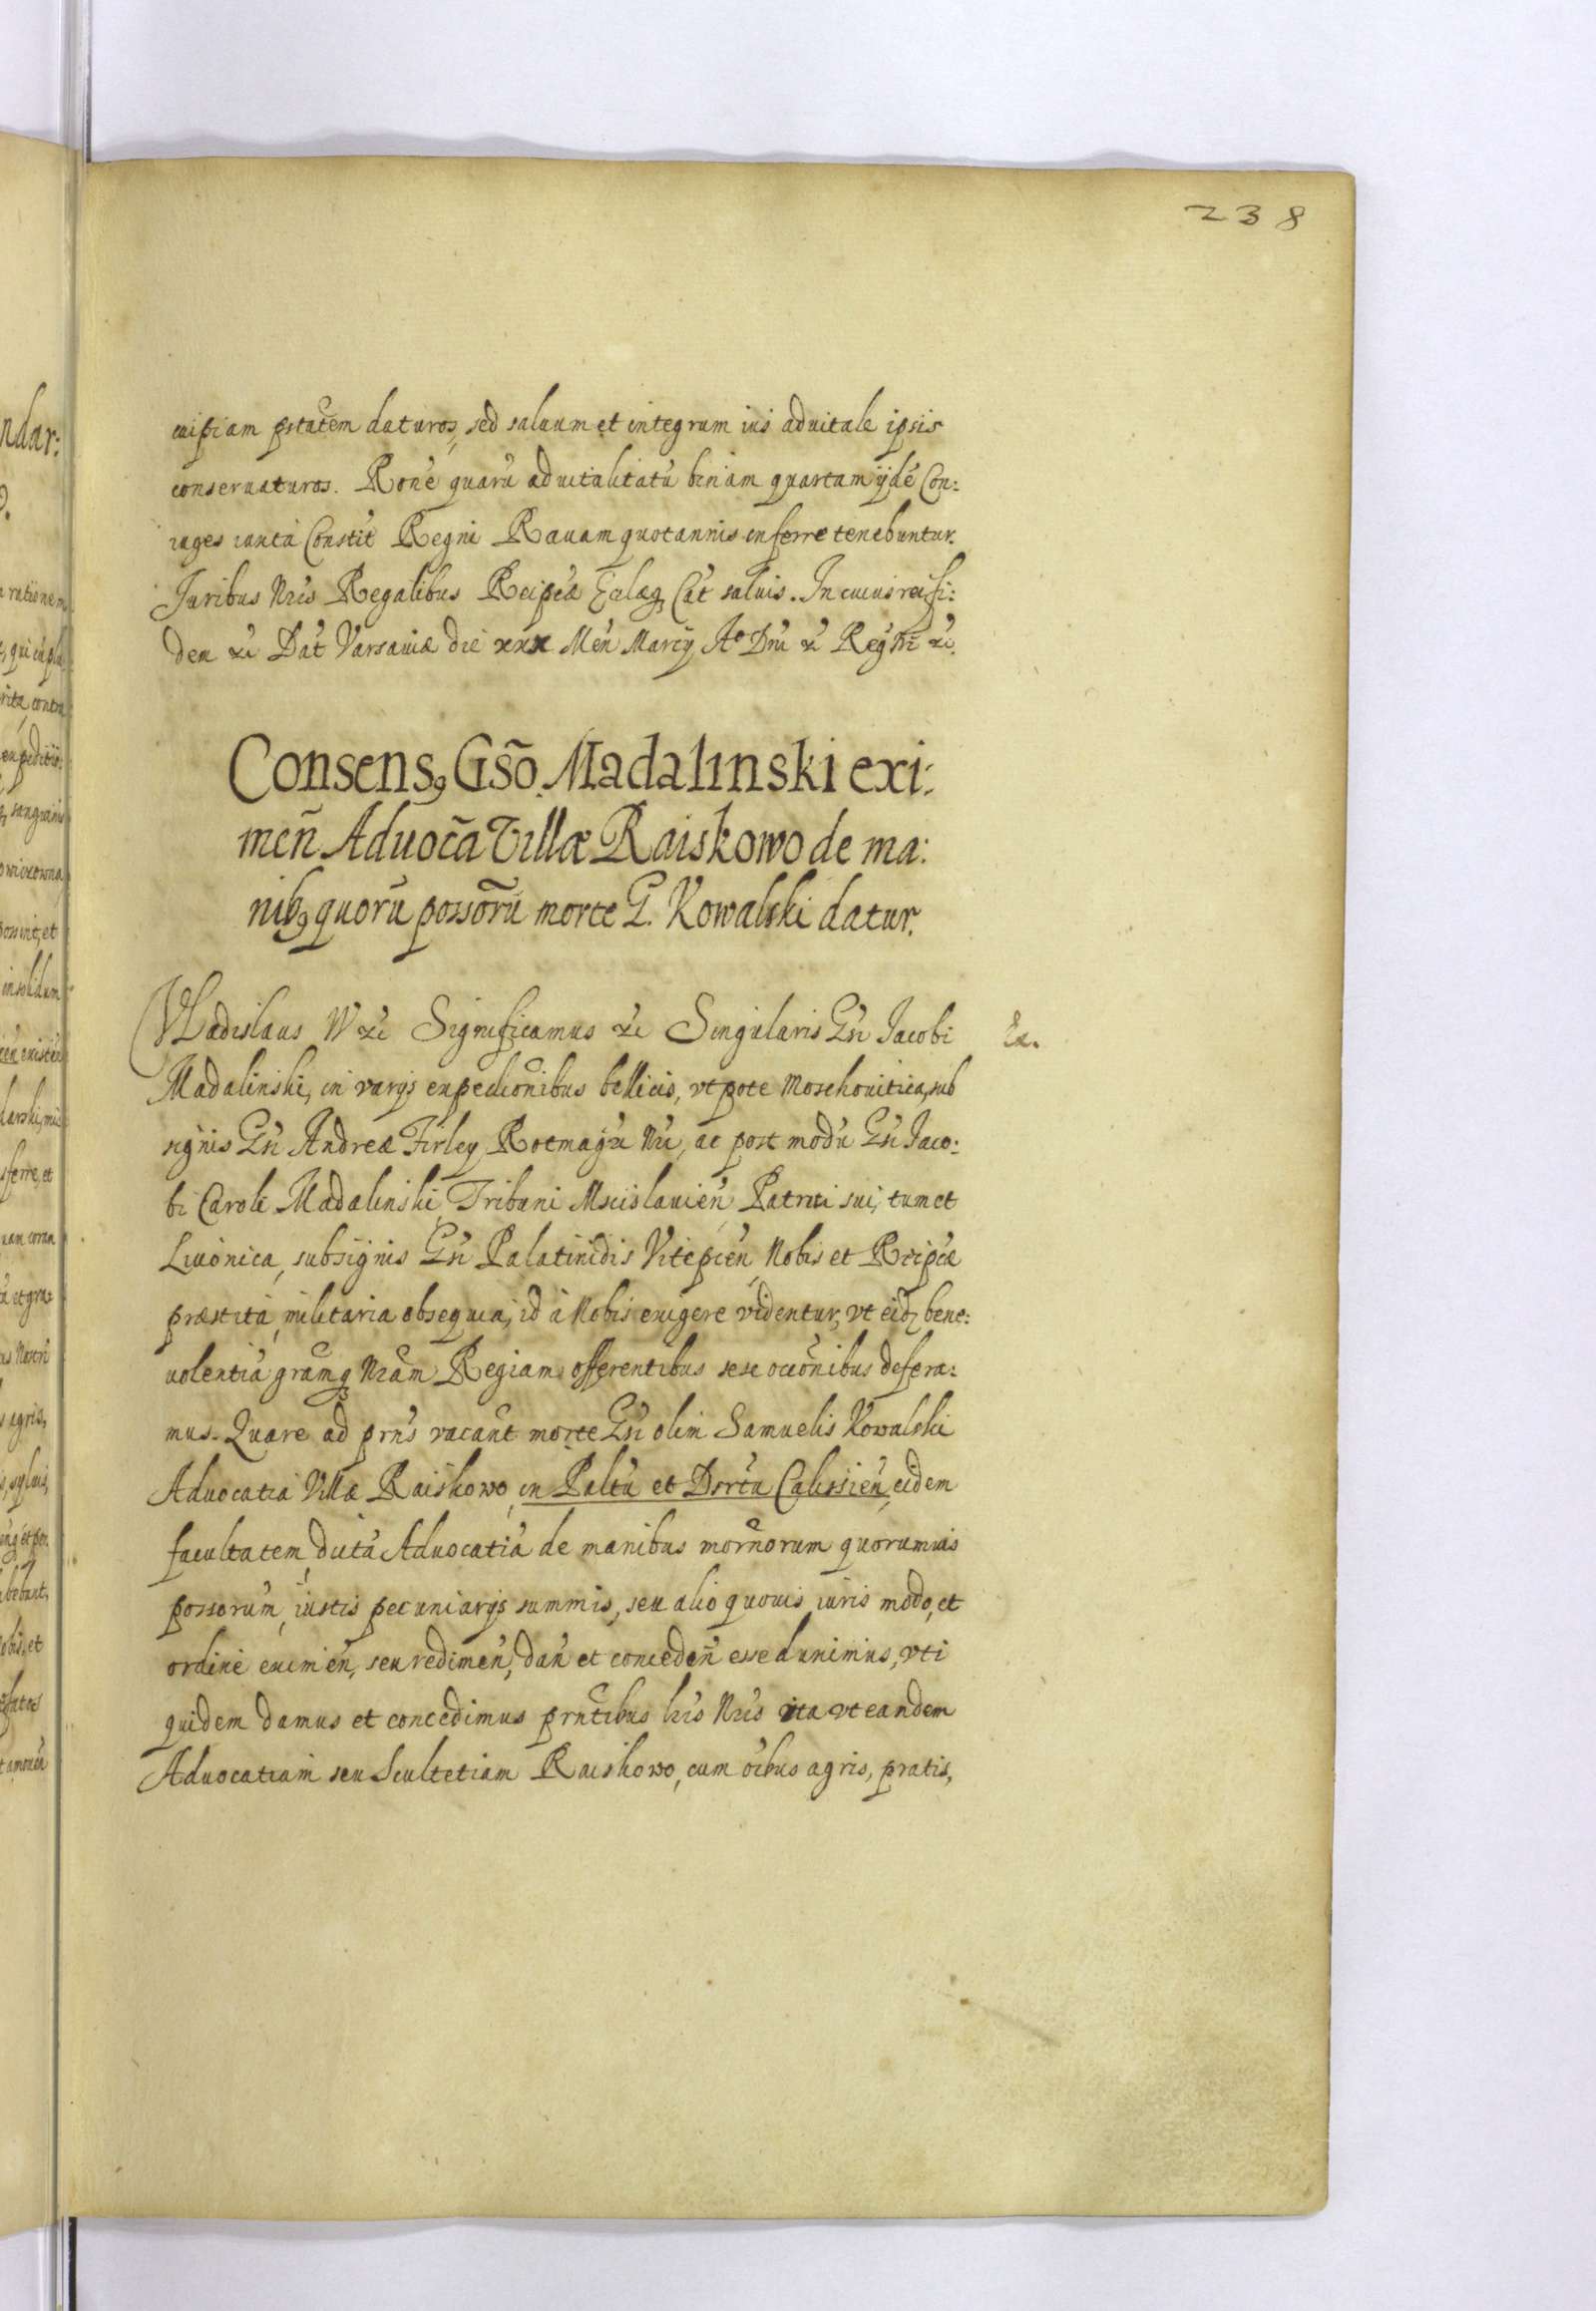 238
cuipiam ptãtem daturos, sed saluum et integrum ius aduitale ipsis
conseruaturos. Rone quarũ aduitalitatũ binam quartam ijdẽ Con:
iuges iuxta Constit Regni Rauam quotannis inferre tenebuntur.
Juribus Nris Regalibus Reipcæ Eclæq Cat saluis. In cuius rei fi:
dem &c Dat Varsauiæ die xxx Men Marcij Aº Dni &c Regn &c.
Consens9 Gso Madalinski exi:
meñ Aduoca Villæ Raiskowo de ma:
nib9 quorũ possorũ morte G. Kowalski datur.
VLadislaus IV &c Significamus &c Singularis Gsi Iacobi
Ex.
Madalinski, in varijs expedionibus bellicis, vt pote Moschouitica, sub
signis Gsi Andreæ Firley Rotmagri Nri, ac post modũ Gsi Iaco:
bi Caroli Madalinski Tribuni Mscislauien Patrui sui, tum et
Liuonica, sub signis Gsi Palatinidis Vitepscen, Nobis et Reipcæ
præstita, militaria obsequia, id à Nobis exigere videntur, vt eidz bene:
uolentiã gramq Nram Regiam offerentibus sese occonibus defera:
mus. Quare ad prns vacant morte Gsi olim Samuelis Kowalski
Aduocatia Villæ Raiskowo, in Paltu et Dsrtu Calissien, eidem
facultatem, dictã Aduocatiã de manibus mornorum quorumuis
possorum, iustis pecuniarijs summis, seu alio quouis iuris modo, et
ordine eximen, seu redimen, dan et conceden esse duximus, vti
quidem damus et concedimus prntibus lris Nris ita vt eandem
Aduocatiam seu Scultetiam Raiskowo, cum oibus agris, pratis,